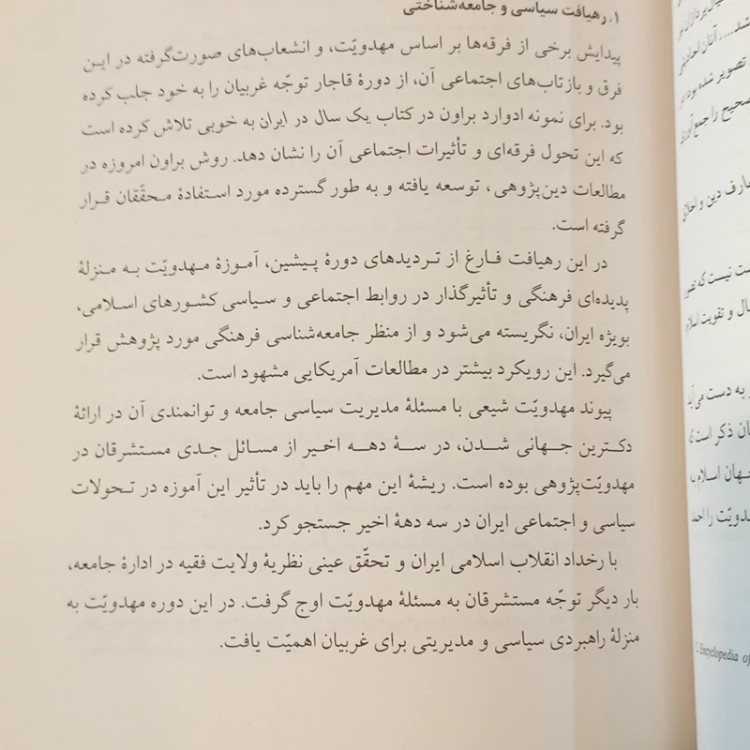 ۱. رهیافت سیاسی و جامعه‌شناختی
پیدایش برخی از فرقه‌ها بر اساس مهدویّت، و انشعاب‌های صورت‌گرفته در این
فرق و بازتاب‌های اجتماعی آن، از دورهٔ قاجار توجّه غربیان را به خود جلب کرده
بود. برای نمونه ادوارد براون در کتاب یک سال در ایران به خوبی تلاش کرده است
که این تحول فرقه‌ای و تأثیرات اجتماعی آن را نشان دهد. روش براون امروزه در
مطالعات دین‌پژوهی، توسعه یافته و به طور گسترده مورد استفادهٔ محقّقان قرار
گرفته است.
در این رهیافت فارغ از تردیدهای دورهٔ پیشین، آموزهٔ مهدویّت به منزلهٔ
پدیده‌ای فرهنگی و تأثیرگذار در روابط اجتماعی و سیاسی کشورهای اسلامی،
بویژه ایران، نگریسته می‌شود و از منظر جامعه‌شناسی فرهنگی مورد پژوهش قرار
می‌گیرد. این رویکرد بیشتر در مطالعات آمریکایی مشهود است.
پیوند مهدویّت شیعی با مسئلهٔ مدیریت سیاسی جامعه و توانمندی آن در ارائهٔ
دکترین جهانی شدن، در سهٔ دهه اخیر از مسائل جدی مستشرقان در
مهدویّت‌پژوهی بوده است. ریشهٔ این مهم را باید در تأثیر این آموزه در تحولات
سیاسی و اجتماعی ایران در سه دههٔ اخیر جستجو کرد.
با رخداد انقلاب اسلامی ایران و تحقّق عینی نظریهٔ ولایت فقیه در ادارهٔ جامعه،
بار دیگر توجّه مستشرقان به مسئلهٔ مهدویّت اوج گرفت. در این دوره مهدویّت به
منزلهٔ راهبردی سیاسی و مدیریتی برای غربیان اهمیّت یافت.
شد.... آنان
تصویر شده بود
صحیح را جمع‌آوری
عارف دین و اخلاق
ست نیست که
ال و تقویت اسلام
به دست می‌آید
ان ذکر است
جهان اسلام
دویّت را
1. Encyclopedia of